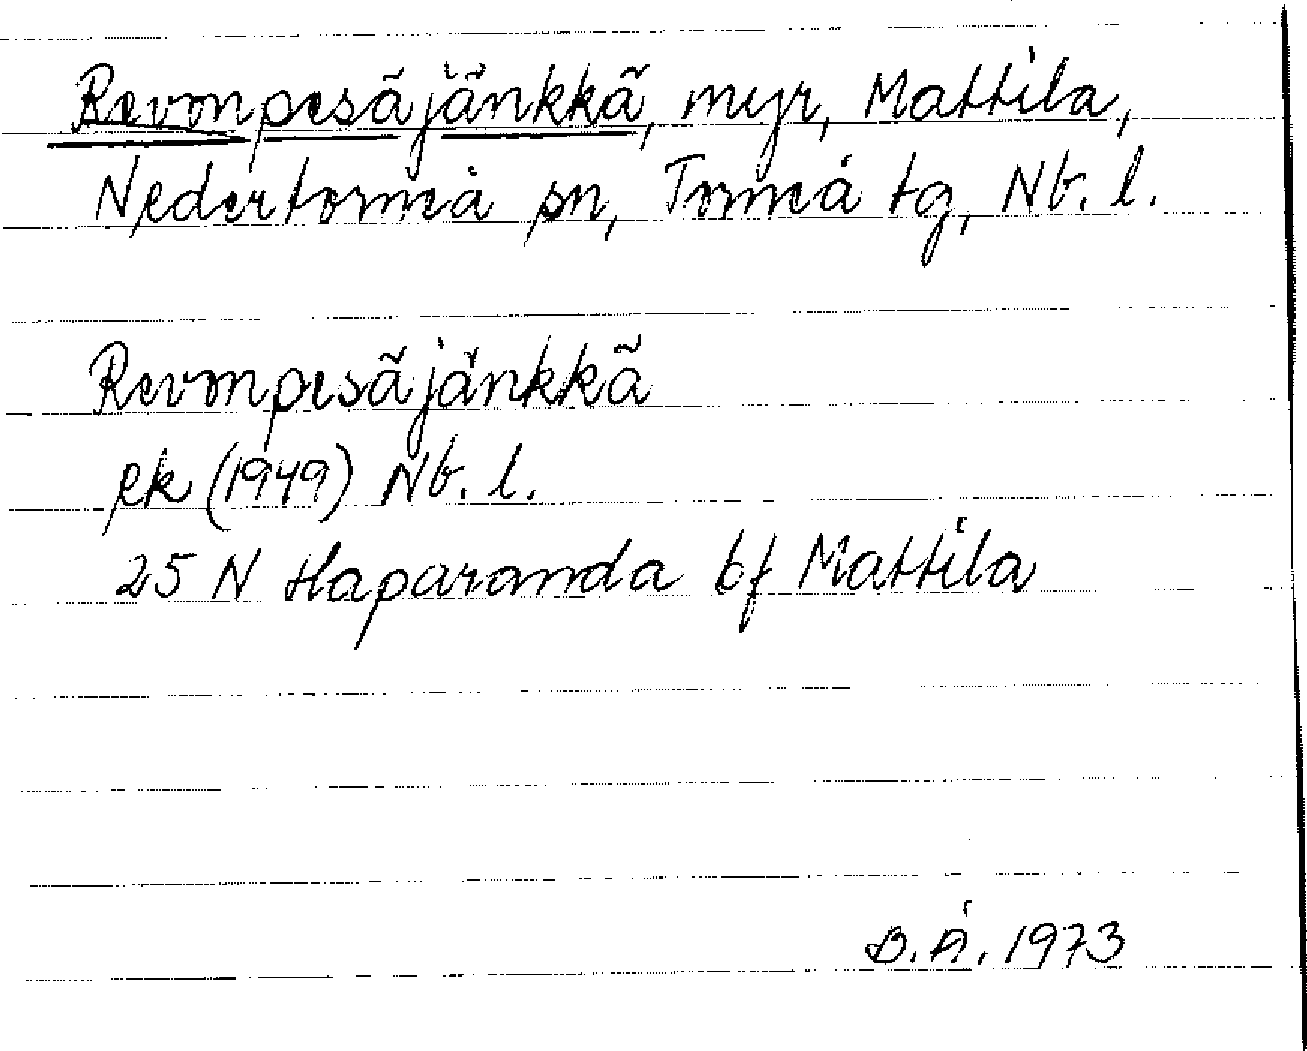 Revonpesäjänkkä, myr, Mattila,
Nedertorneå sn, Torneå tg, Nb. l.
Revonpesäjänkkä
ek (1949) Nb. l.
25 N Haparanda bf Mattila
B.Å. 1973